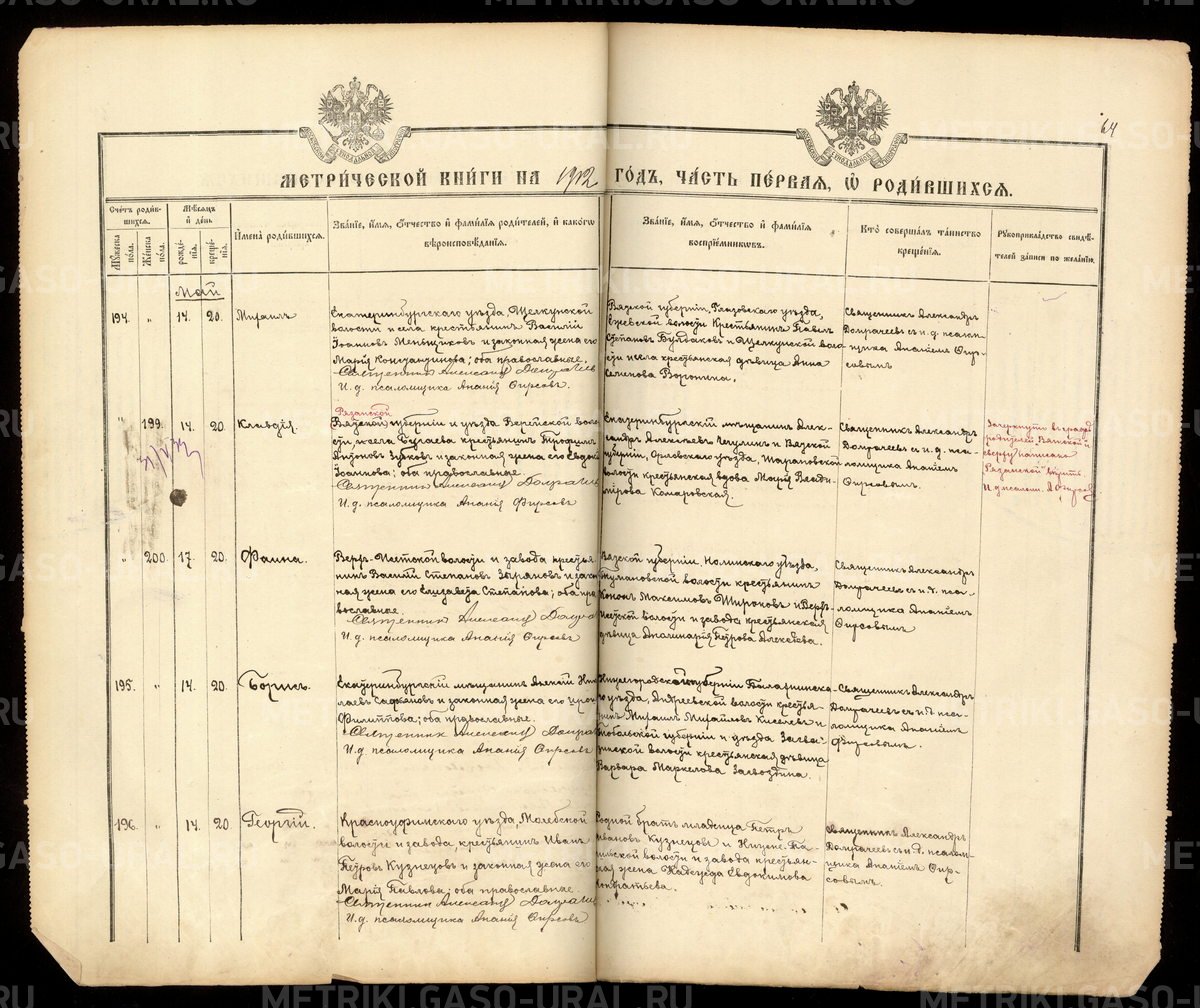 64
МЕТРИ́ЧЕСКОЙ КНИ́ГИ НА 1912 ГО́ДЪ, ЧА́СТЬ ПЕ́РВАЯ, Ѡ РОДИ́ВШИХСЯ.
Счетъ роди́в-
шихся.
Мужеска по́ла.
Же́нска по́ла.
Мѣсяцъ
и́ де́нь
рожде́-
нія.
креще́-
нія.
И́мена роди́вшихся.
Зва́ніе, и́мя, о́тчество и́ фами́лія роди́телей, и́ како́гѡ
вѣроисповѣ́данія.
Зва́ніе, и́мя, о́тчество и́ фами́лія
воспріе́мниковъ.
Кто̀ соверша́лъ та́инство
креще́нія.
Рукоприкла́дство свидѣ́-
телей за́писи по жела́нію.
Май
194. " 14. 20. Михаилъ
Екатеринбургскаго уѣзда Щелкунской
волости и села крестьянинъ Василій
Іоанновъ Меньщиковъ и законная жена его
Марія Константинова; оба православные.
Священникъ Александръ
И. д. псаломщика Ананія Фирсовъ.
Вятской губерніи, Глазовскаго уѣзда,
волости Крестьянинъ Павелъ
Степановъ Булдаковъ и Щелкунской воло-
сти и села крестьянская дѣвица Анна
Семенова Воронина.
Священникъ Александръ
Домрачеевъ съ и. д. псалом-
щика Ананіемъ Фир-
совымъ
" 199. 14. 20. Клавдія.
Рязанской
Вятской губерніи и уѣзда воло-
сти, и села крестьянинъ Трофимъ
Антоновъ Зубковъ и законная жена его Евдокія
Іоаннова; оба православные.
Священникъ Александръ
И. д. псаломщика Ананія Фирсовъ
Екатеринбургскій мѣщанинъ Алек-
сандръ Алексѣевъ и Вятской
губерніи, Орловскаго уѣзда,
волости крестьянская вдова Марія Влади-
мірова Комаровская.
Священникъ Александръ
Домрачеевъ съ и. д. пса-
ломщика Ананіемъ
Фирсовымъ.
Зачеркнуто въ графѣ
родителей Вятской и
сверху написано
Рязанской вѣрить
И. д. псалом. А. Фирсовъ
" 200. 17. 20. Фаина.
Верхъ-Исетской волости и завода крестья-
нинъ Василій Степановъ и закон-
ная жена его Елизавета Степанова; оба пра-
вославные.
Священникъ Александръ
И. д. псаломщика Ананія Фирсовъ
Вятской губерніи, Нолинскаго уѣзда,
волости крестьянинъ
Кононъ Максимовъ Широковъ и Верхъ-
Исетской волости и завода крестьянская
дѣвица Аполинарія Петрова Алексѣева.
Священникъ Александръ
Домрачеевъ съ и. д. пса-
ломщика Ананіемъ
Фирсовымъ
195. " 14. 20. Борисъ.
Екатеринбургскій мѣщанинъ Алексій Нико-
лаевъ и законная жена его
Филиппова; оба православные.
Священникъ Александръ
И. д. псаломщика Ананія Фирсовъ
Нижегородской губерніи
уѣзда, Андреевской волости крестья-
нинъ Михаилъ Михайловъ Киселевъ и
Тобольской губерніи и уѣзда
волости крестьянская дѣвица
Варвара Маркелова Загвоздина.
Священникъ Александръ
Домрачеевъ съ и. д. пса-
ломщика Ананіемъ
Фирсовымъ.
196. " 14. 20. Георгій.
Красноуфимскаго уѣзда, Молебской
волости и завода крестьянинъ Иванъ
Петровъ Кузнецовъ и законная жена его
Марія Павлова; оба православные.
Священникъ Александръ
И. д. псаломщика Ананія Фирсовъ
Родной братъ младенца Петръ
Ивановъ Кузнецовъ и
волости и завода крестьян-
ская жена Надежда Евдокимова
Священникъ Александръ
Домрачеевъ съ и. д. псалом-
щика Ананіемъ Фир-
совымъ.
METRIKI.GASO-URAL.RU